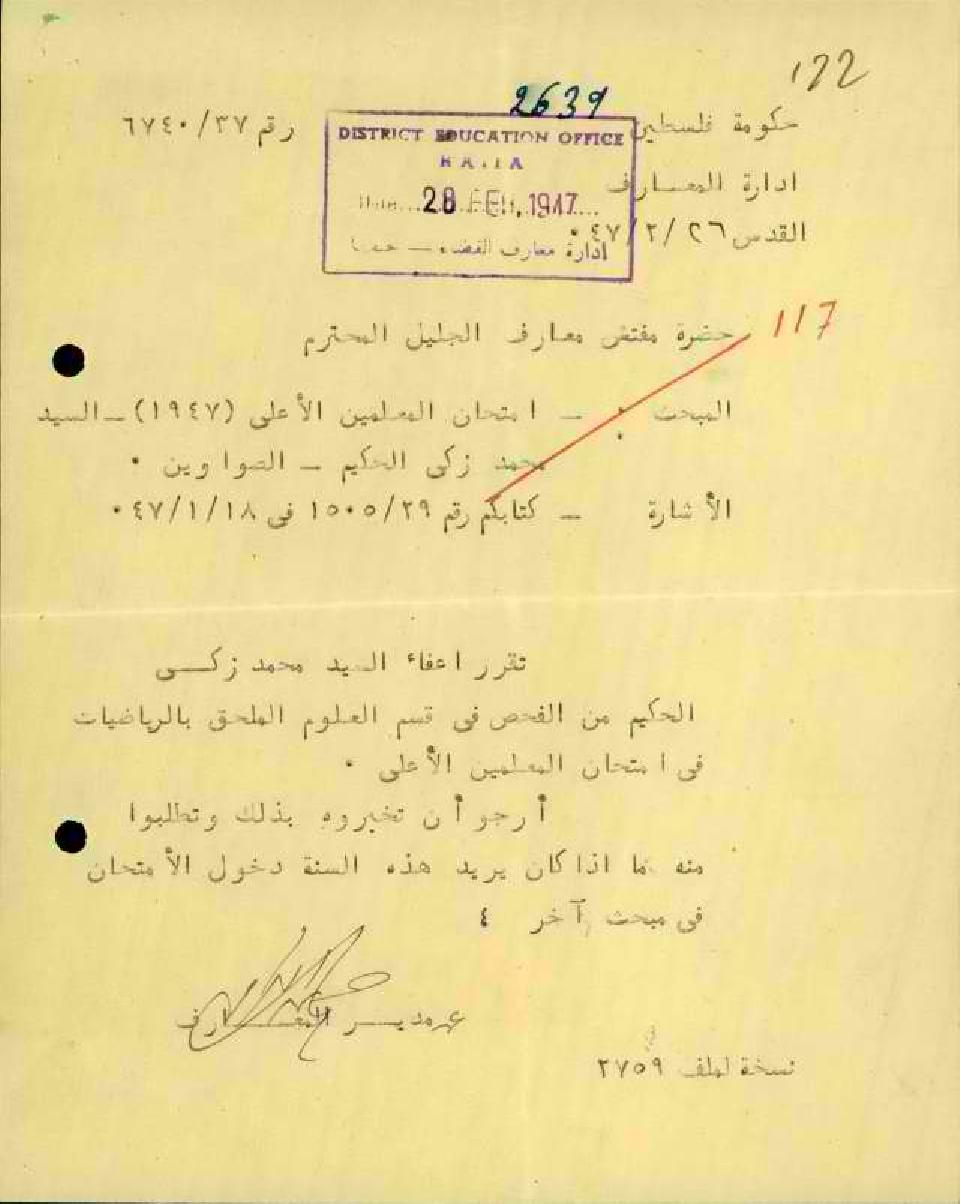 122
2639
حكومة فلسطين
رقم ٦٧٤٠/٣٧
DISTRICT EDUCATION OFFICE
HAIFA
Date 28 FEB, 1947
ادارة معارف القضاء — حيفا
ادارة المعـــارف
القدس ٤٧/٢/٢٦٠
117
حضرة مفتش معارف الجليل المحترم
المبحث : ـ امتحان المعلمين الأعلى (١٩٤٧) ـ السيد
محمد زكى الحكيم ـ الصواوين ٠
الأشارة ـ كتابكم رقم ١٥٠٥/٢٩ فى ٤٧/١/١٨٠
تقرر اعفاء السيد محمد زكـــى
الحكيم من الفحص فى قسم العلوم الملحق بالرياضيات
فى امتحان المعلمين الأعلى ٠
أرجو أن تخبروه بذلك وتطلبوا
منه عما اذا كان يريد هذه السنة دخول الأمتحان
فى مبحث آخر ٤
ع مديـــر المعـــارف
نسخة لملف ٢٧٥٩